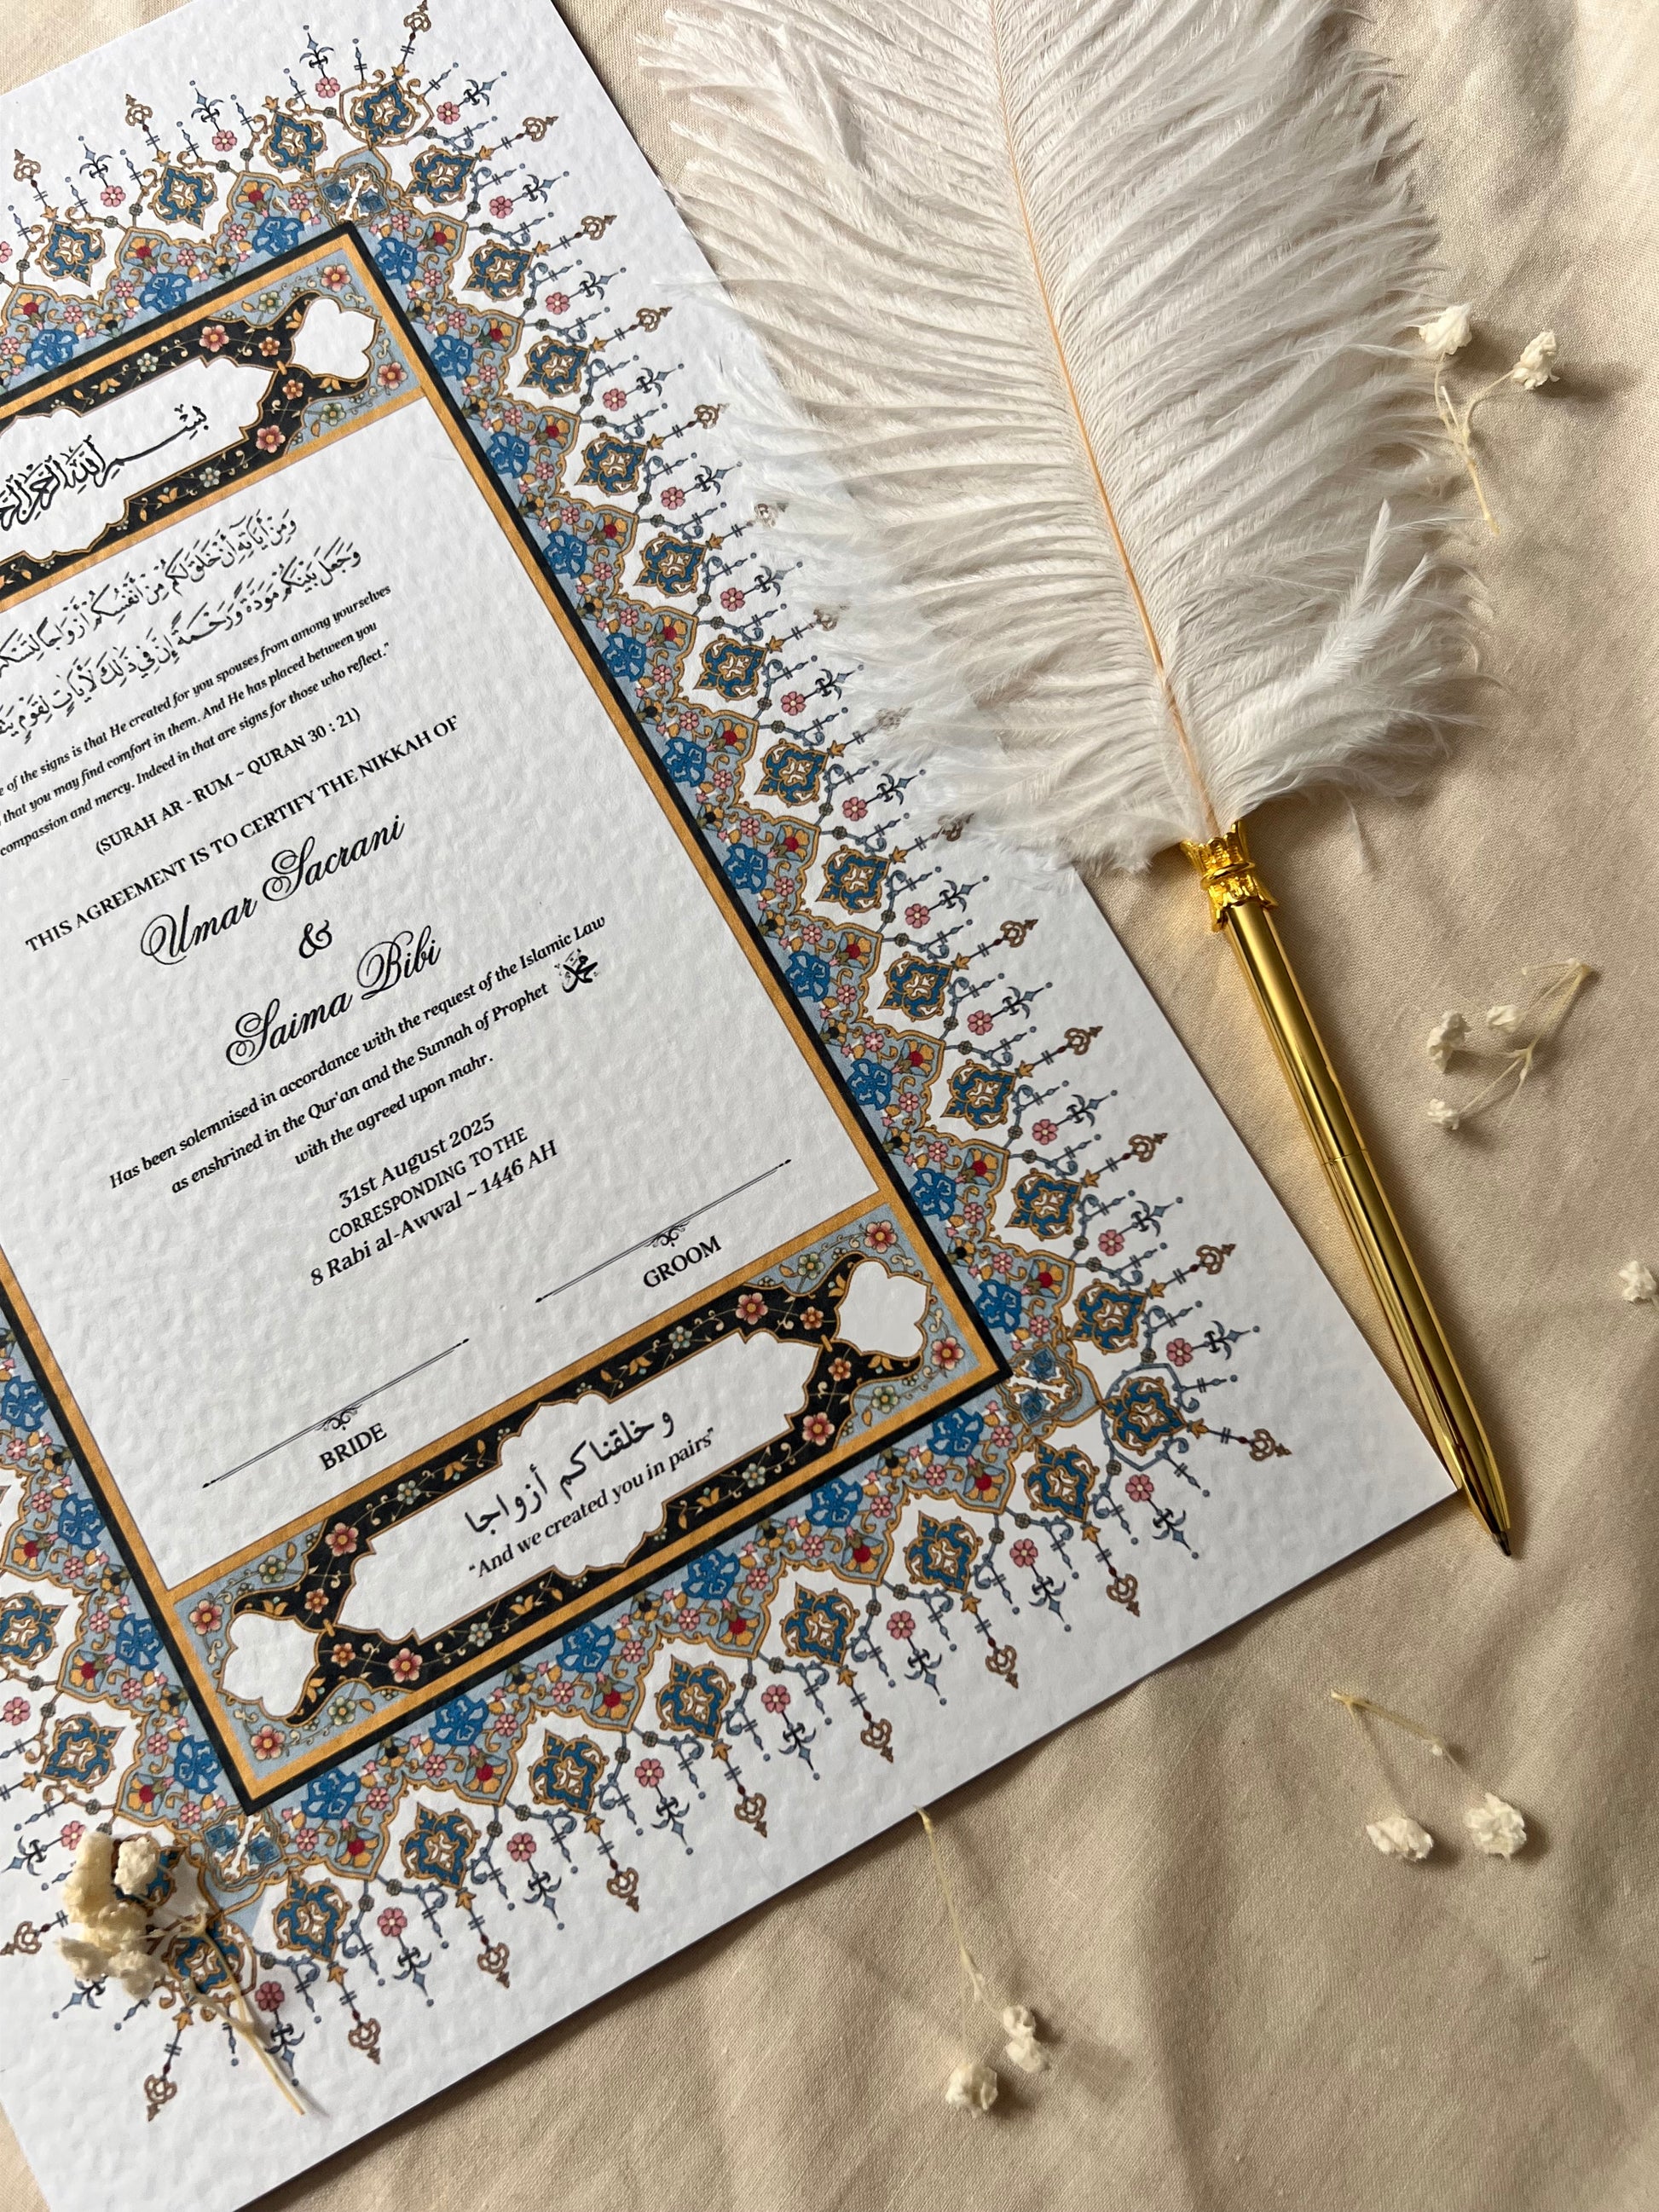 بِسْمِ اللَّهِ الرَّحْمَنِ
وَمِنْ أَيَاتِهِ أَنْ خَلَقَ لَكُم مِّنْ أَنْفُسِكُمْ أَزْوَاجًا
وَجَعَلَ بَيْنَكُم مَّوَدَّةً وَرَحْمَةً إِنَّ فِي ذَلِكَ لَأَيَاتٍ لِقَوْمٍ
of the signs is that He created for you spouses from among yourselves
that you may find comfort in them. And He has placed between you
compassion and mercy. Indeed in that are signs for those who reflect."
(SURAH AR - RUM ~ QURAN 30 : 21)
THIS AGREEMENT IS TO CERTIFY THE NIKKAH OF
Umar Sacrani
&
Saima Bibi
Has been solemnised in accordance with the request of the Islamic Law
as enshrined in the Qur'an and the Sunnah of Prophet محمد
with the agreed upon mahr.
31st August 2025
CORRESPONDING TO THE
8 Rabi al-Awwal ~ 1446 AH
GROOM
BRIDE
و خلقناكم أزواجا
"And we created you in pairs"